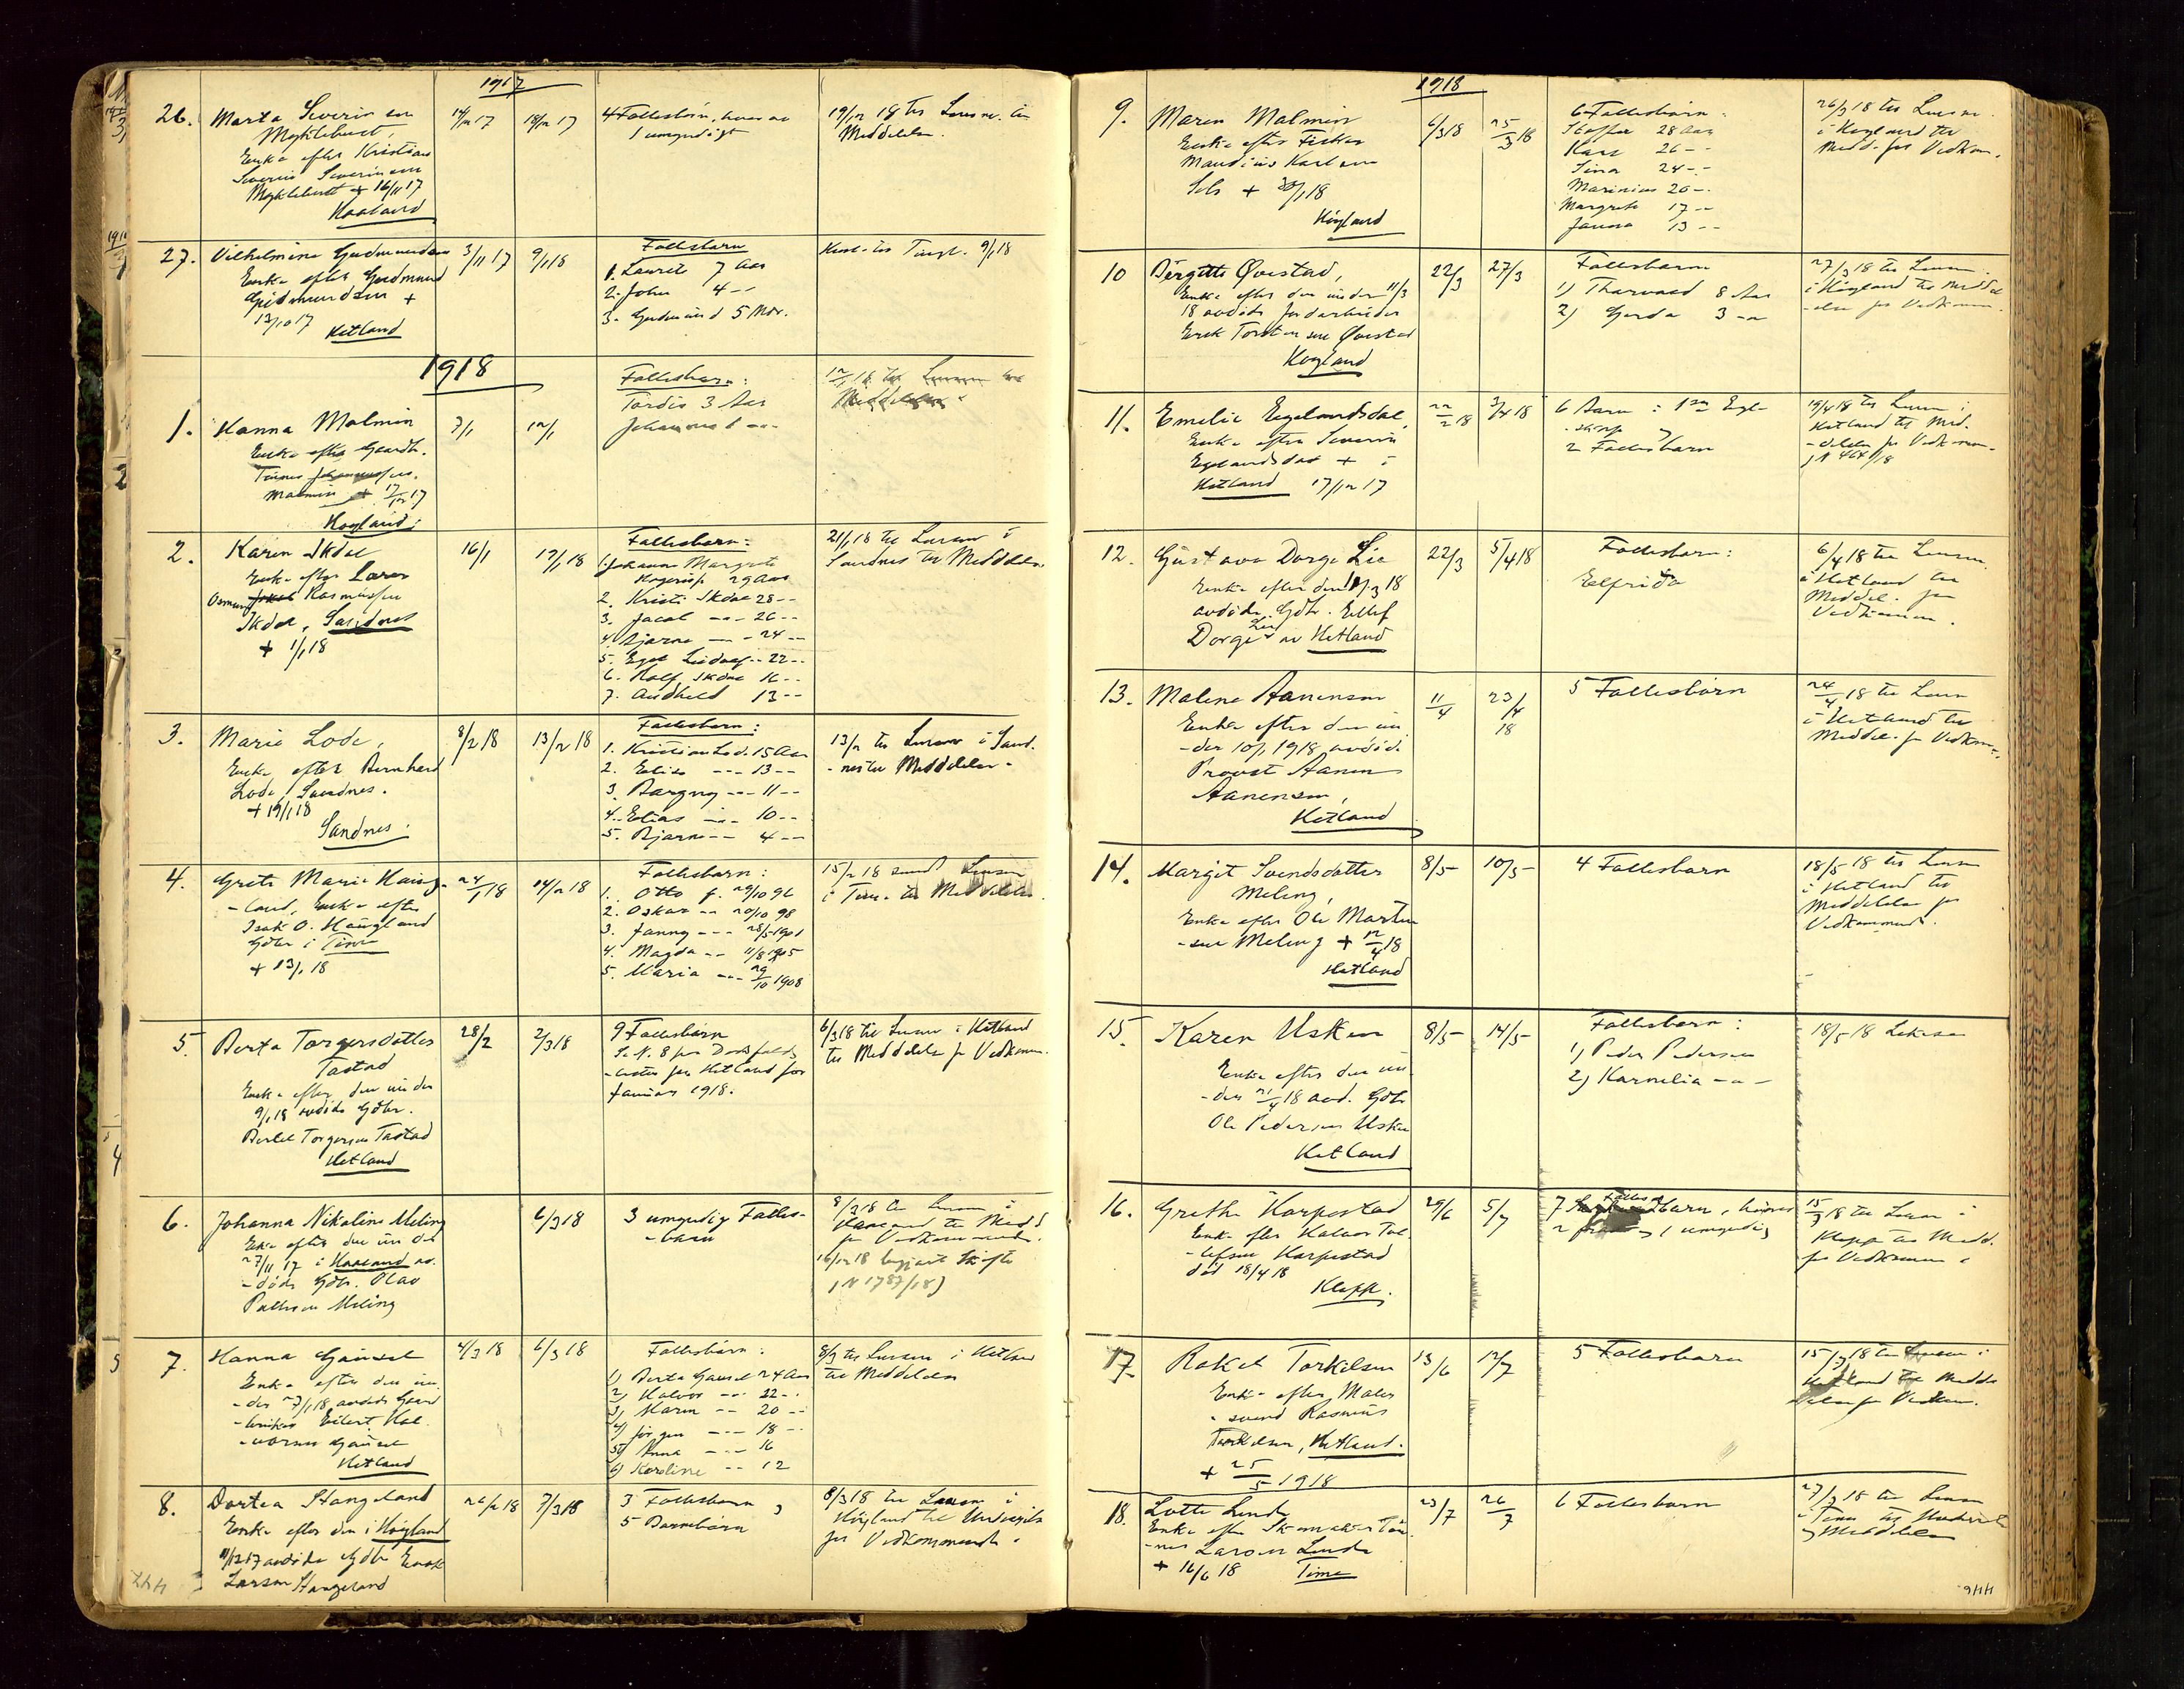 1917
26. Marta Severinsen
Mykletust,
Enke efter Kristian
Severin Severinsen
Mykletust + 16/11 17
Haaland
14/12 17
18/12 17
4 Fællesbørn, hvorav
1 umyndigt
19/12 18 til Lensm. til
Meddelelse.
27. Vilhelmine Gudmundsen
Enke efter Gudmund
Gudmundsen +
13/10 17
Hetland
3/11 17
9/1 18
Fællesbarn
1. Laurits 7 Aar
2. John 4 --
3. Gudmund 5 Mdr.
Kunt. til Tingl. 9/1 18
1918
1. Hanna Malmin
Enke efter Gaardbr.
Tønnes
Malmin + 17/12 17
Høyland.
7/1
12/1
Fællesbarn:
Tordis 3 Aar
2. Karen Skdal
Enke efter Lars
Rasmussen
Skdal, Sandnes
+ 1/1 18
16/1
17/1 18
Fællesbarn:
1. Johanne Margrete
29 Aar
2. Kristi Skdal 28 --
3. Jacob --- 26 --
4. Bjarne --- 24 --
5. -- 22 --
6. Rolf Skdal 16 --
7. Audhild 13 --
21/1 18 til Lensm i
Sandnes til Meddelelse
3. Marie Lode,
Enke efter Bernhard
Lode, Sandnes.
+ 19/1 18
Sandnes.
8/2 18
13/2 18
Fællesbarn:
1. Kristian Lode 15 Aar
2. Elise --- 13 --
3. Bargny --- 11 --
4. Elias --- 10 --
5. Bjarne -- 4 --
13/2 til Lensm i Sand-
nes til Meddelelse.
4. Grete Marie Haug-
land, Enke efter
Isak O. Haugland
Gdbr i Time
+ 13/1 18
24/1 18
14/2 18
Fællesbarn:
1. Otto f. 29/10 96
2. Oskar -- 20/10 98
3. Fanny --- 28/5 1901
4. Magda -- 11/8 1905
5. Maria --- 29/10 1908
15/2 18 sendt Lensm
i Time til Meddelelse
5. Berta Torgersdatter
Tastad
Enke efter den under
9/1 18 avdøde Gdbr.
Bertel Torgersen Tastad
Hetland
28/2
2/3 18
9 Fællesbørn
Se N. 8 paa Dødsfalds-
listen for Hetland for
Januar 1918.
6/3 18 til Lensm i Hetland
til Meddelelse for Vedkomm.
6. Johanna Nikoline Meling
Enke efter den under
27/11 17 i Haaland av-
døde Gdbr. Olav
Pallesen Meling
6/3 18
3 umyndig Fælles-
barn
8/3 18 til Lensm i
Haaland til Medd
for Vedkommende.
16/12 18 begjært Skifte
(N 1787/18)
7. Hanna Gausel
Enke efter den un-
der 27/1 18 avdøde Gaard-
bruker Eilert Hal-
vorsen Gausel
Hetland
4/3 18
6/3 18
Fællesbørn:
1) Berta Gausel 24 Aar
2) Halvor --- 22 --
3) Maren -- 20 --
4) Jørgen --- 18 --
5) Anna --- 16
6) Karoline -- 12
8/3 til Lensm i Hetland
til Meddelelse
8. Dortea Stangeland
Enke efter den i Høyland
11/12 17 avdøde Gdbr Enok
Larsen Stangeland
26/2 18
7/3 18
3 Fællesbørn og
5 Barnebørn
8/3 18 til Lensm i
Høyland til Underretn
for Vedkommende.
1918
9. Maren Malmin
Enke efter Fisker
Maudius Karlsen
Sele + 30/1 18
Høyland
6/3 18
25/3 18
6 Fællesbørn:
Steffen 28 Aar
Karl 26 --
Sina 24 --
Marinius 20 --
Margrete 17 --
Janna 13 --
26/3 18 til Lensm.
i Høyland til
Medd. for Vedkom.
10 Bergitte Øvestad,
Enke efter den under 11/3
18 avdøde Jordarbeider
Erik Torstensen Øvestad
Høyland
22/3
27/3
Fællesbarn
1) Thorvald 8 Aar
2) Gerda 3 --
27/3 18 til Lensm.
i Høyland til Meddel
-else for Vedkomm.
11. Emelie Eigelandsdal,
Enke efter Severin
Eigelandsdal + i
Hetland 17/12 17
22/2 18
3/4 18
6 Barn: 1
2 Fællesbørn
19/4 18 til Lensm i
Hetland til Med-
delelse for Vedkomm.
J N 464/18
12. Gustava Dorge Lie
Enke efter den 11/3 18
avdøde Gdbr. Ellef
Dorge Lie av Hetland
22/3
5/4 18
Fællesbarn:
Elfrida
6/4 18 til Lensm.
i Hetland til
Meddel. for
Vedkomm.
13. Malene Aanensen
Enke efter den un-
der 10/1 1918 avdøde
Provst Aanen
Aanensen,
Hetland
11/4
23/4
18
5 Fællesbørn
24/4 18 til Lensm
i Hetland til
Meddel. for Vedkom.
14. Margit Svendsdatter
Meling,
Enke efter Ole Martin
-sen Meling + 12/4 18
Hetland
8/5
10/5
4 Fællesbarn
18/5 18 til Lensm
i Hetland til
Meddelelse for
Vedkommende.
15. Karen Usken
Enke efter den un-
der 21/4 18 avd. Gdbr
Ole Pedersen Usken
Hetland
8/5
14/5
Fællesbarn:
1) Peder Pedersen
2) Karnelia -- -
18/5 18 Lensm
16. Grethe Harpestad
Enke efter Halvor Tol-
lefsen Harpestad
død 18/4 18
Klepp.
29/6
5/7
7 Fællesbarn, hvorav
1 umyndig
15/7 18 til Lensm i
Klepp til Medd.
for Vedkomm.
17. Rakel Torkelsen
Enke efter Maler-
svend Rasmus
Torkelsen, Hetland.
+ 25/5 1918
13/6
12/7
5 Fællesbarn
15/7 18 til Lensm i
Hetland til Medde
lelse for Vedkom.
18. Lotte Lende
Enke efter Skomaker Tøn-
nes Larsen Lende
+ 16/6 18 Time
23/7
26/7
6 Fællesbarn
27/7 18 til Lensm
i Time til Underretn
og Meddelelse